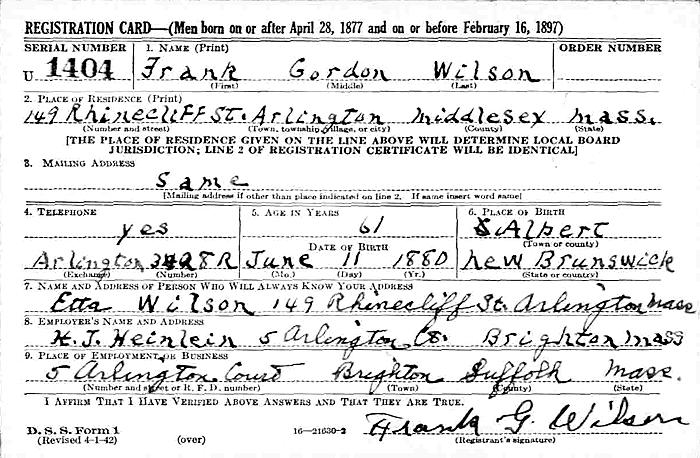 REGISTRATION CARD—(Men born on or after April 28, 1877 and on or before February 16, 1897)
SERIAL NUMBER 1. NAME (Print) ORDER NUMBER
U 1404 Frank Gordon Wilson
(First) (Middle) (Last)
2. PLACE OF RESIDENCE (Print)
149 Rhinecliff St. Arlington Middlesex Mass.
(Number and street) (Town, township, village, or city) (County) (State)
[THE PLACE OF RESIDENCE GIVEN ON THE LINE ABOVE WILL DETERMINE LOCAL BOARD
JURISDICTION; LINE 2 OF REGISTRATION CERTIFICATE WILL BE IDENTICAL]
3. MAILING ADDRESS
Same
[Mailing address if other than place indicated on line 2. If same insert word same]
4. TELEPHONE 5. AGE IN YEARS 6. PLACE OF BIRTH
yes 61 Albert
DATE OF BIRTH (Town or county)
Arlington 8R June 11 1880 New Brunswick
(Exchange) (Number) (Mo.) (Day) (Yr.) (State or country)
7. NAME AND ADDRESS OF PERSON WHO WILL ALWAYS KNOW YOUR ADDRESS
Etta Wilson 149 Rhinecliff St. Arlington Mass
8. EMPLOYER'S NAME AND ADDRESS
H. J. Heinlein 5 Arlington Ct. Brighton Mass
9. PLACE OF EMPLOYMENT OR BUSINESS
5 Arlington Court Brighton Suffolk Mass.
(Number and street or R. F. D. number) (Town) (County) (State)
I AFFIRM THAT I HAVE VERIFIED ABOVE ANSWERS AND THAT THEY ARE TRUE.
Frank G. Wilson
D. S. S. Form 1
(Revised 4-1-42) (over) 16—21630-2 (Registrant's signature)